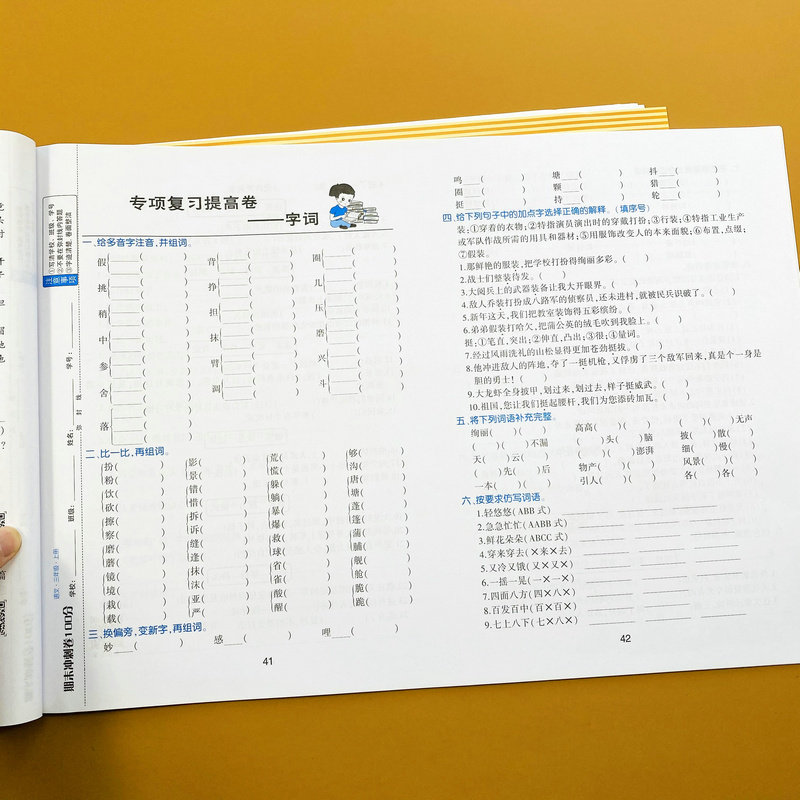 专项复习提高卷
——字词
一、给多音字注音,并组词。
假 ( ) 背 ( ) 圈 ( )
挑 ( ) 挣 ( ) 几 ( )
稍 ( ) 担 ( ) 压 ( )
中 ( ) 抹 ( ) 磨 ( )
参 ( ) 臂 ( ) 兴 ( )
舍 ( ) 调 ( ) 斗 ( )
落 ( )
二、比一比,再组词。
扮( ) 影( ) 荒( ) 够( )
粉( ) 景( ) 慌( ) 沟( )
饮( ) 错( ) 躲( ) 唐( )
砍( ) 惜( ) 躺( ) 塘( )
擦( ) 拆( ) 暴( ) 蓬( )
察( ) 诉( ) 爆( ) 篷( )
磨( ) 缝( ) 救( ) 蒲( )
蘑( ) 逢( ) 球( ) 脯( )
镜( ) 抹( ) 省( ) 舰( )
境( ) 沫( ) 雀( ) 舱( )
栽( ) 亚( ) 酸( ) 脆( )
载( ) 严( ) 醒( ) 跪( )
三、换偏旁,变新字,再组词。
妙___( ) 感___( ) 哩___( )
41
鸣___( ) 塘___( ) 抖___( )
圈___( ) 颗___( ) 猎___( )
挺___( ) 持___( ) 轮___( )
四、给下列句子中的加点字选择正确的解释。(填序号)
装:①穿着的衣物;②特指演员演出时的穿戴打扮;③行装;④特指工业生产
或军队作战所需的用具和器材;⑤用服饰改变人的本来面貌;⑥布置,点缀;
⑦假装。
1.那鲜艳的服装,把学校打扮得绚丽多彩。( )
2.战士们整装待发。( )
3.大阅兵上的武器装备让我大开眼界。( )
4.敌人乔装打扮成八路军的侦察员,还未进村,就被民兵识破了。( )
5.新年这天,我们把教室装饰得五彩缤纷。( )
6.弟弟假装打哈欠,把蒲公英的绒毛吹到我脸上。( )
挺:①笔直,突出;②伸直,凸出;③很;④量词。
7.经过风雨洗礼的山松显得更加苍劲挺拔。( )
8.他冲进敌人的阵地,夺了一挺机枪,又俘虏了三个敌军回来,真是个一身是
胆的勇士!( )
9.大龙虾全身披甲,划过来,划过去,样子挺威武。( )
10.祖国,您让我们挺起腰杆,我们为您添砖加瓦。( )
五、将下列词语补充完整。
绚丽( )( ) 高高( )( ) ( )( )无声
( )( )不漏 ( )头( )脑 披( )散( )
天( )云( ) ( )( )澎湃 细( )慢( )
( )先( )后 物产( )( ) 风景( )( )
一本( )( ) 引人( )( ) 各( )各( )
六、按要求仿写词语。
1.轻悠悠(ABB 式)
2.急急忙忙(AABB 式)
3.鲜花朵朵(ABCC 式)
4.穿来穿去(×来×去)
5.又冷又饿(又×又×)
6.一摇一晃(一×一×)
7.四面八方(四×八×)
8.百发百中(百×百×)
9.七上八下(七×八×)
42
注意事项
①写清学校、班级、学号
②不要在弥封线内答题
③字迹清楚、卷面整洁
学号:
姓名:
班级:
学校:
弥 封 线
语文·三年级·上册
期末冲刺卷100分